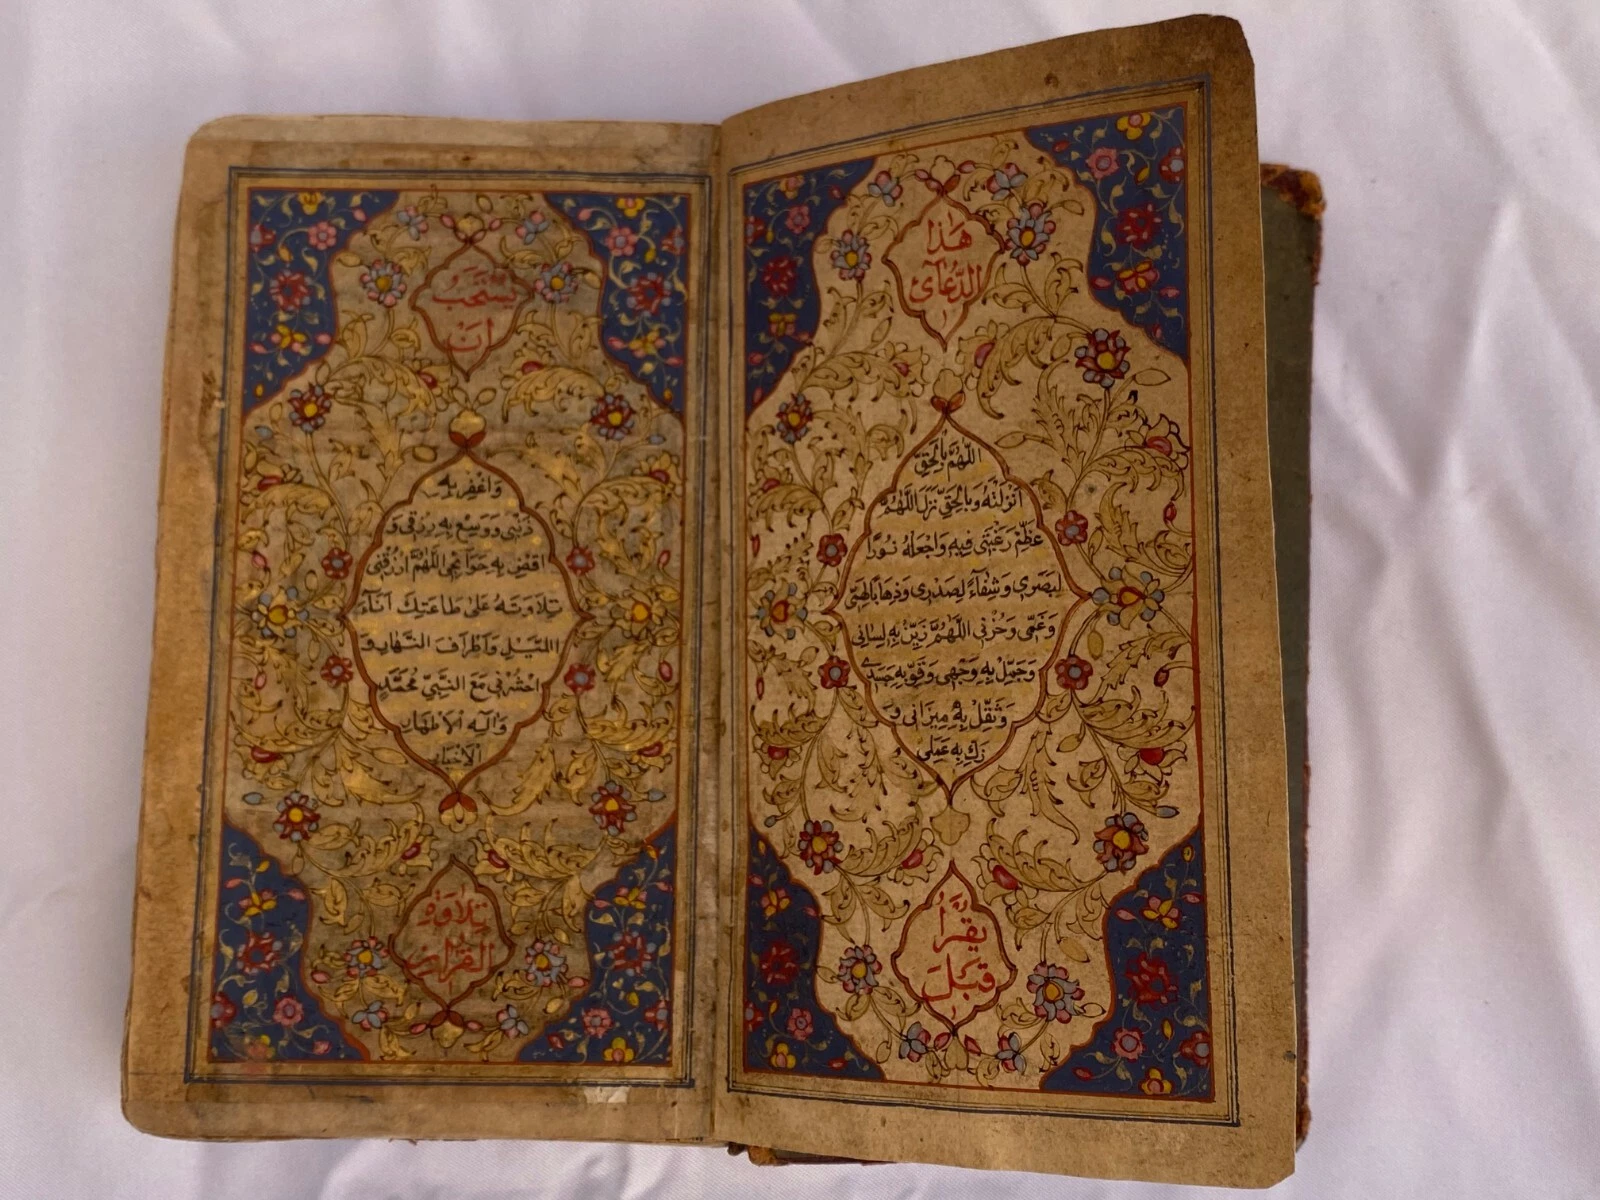 هَذَا
الدُّعَآئ
اَللّٰهُمَّ بِالْحَقِّ
اَنْزَلْتَهُ وَبِالْحَقِّ نَزَلَ اَللّٰهُمَّ
عَظِّمْ رَغْبَتى فيهِ وَاجْعَلْهُ نُورًا
لِبَصَرى وَشِفَآءً لِصَدْرى وَذِهَابًا لِهَمّى
وَغَمّى وَحُزْنى اَللّٰهُمَّ زَيِّنْ بِهِ لِسانى
وَجَمِّلْ بِهِ وَجْهى وَقَوِّبِهِ جَسَدى
وَثَقِّلْ بِهِ ميزَانى وَ
زَكِّ بِهِ عَمَلى
يُقْرَأُ
قَبْلَ
يُسْتَحَبُّ
اَنْ
وَاغْفِر بِهِ
ذَنْبى وَوَسِّعْ بِهِ رِزْقى وَ
اقْضِ بِهِ حَوَائِجى اَللّٰهُمَّ ارْزُقْنى
تِلَاوَتَهُ عَلى طَاعَتِكَ آنَاءَ
اللَّيْلِ وَاَطْرَافَ النَّهَارِ وَ
احْشُرْنى مَعَ النَّبِيِّ مُحَمَّدٍ
وَآلِهِ الاَطْهَارِ
الاَخْيَارِ
تِلَاوَة
القُرْآن